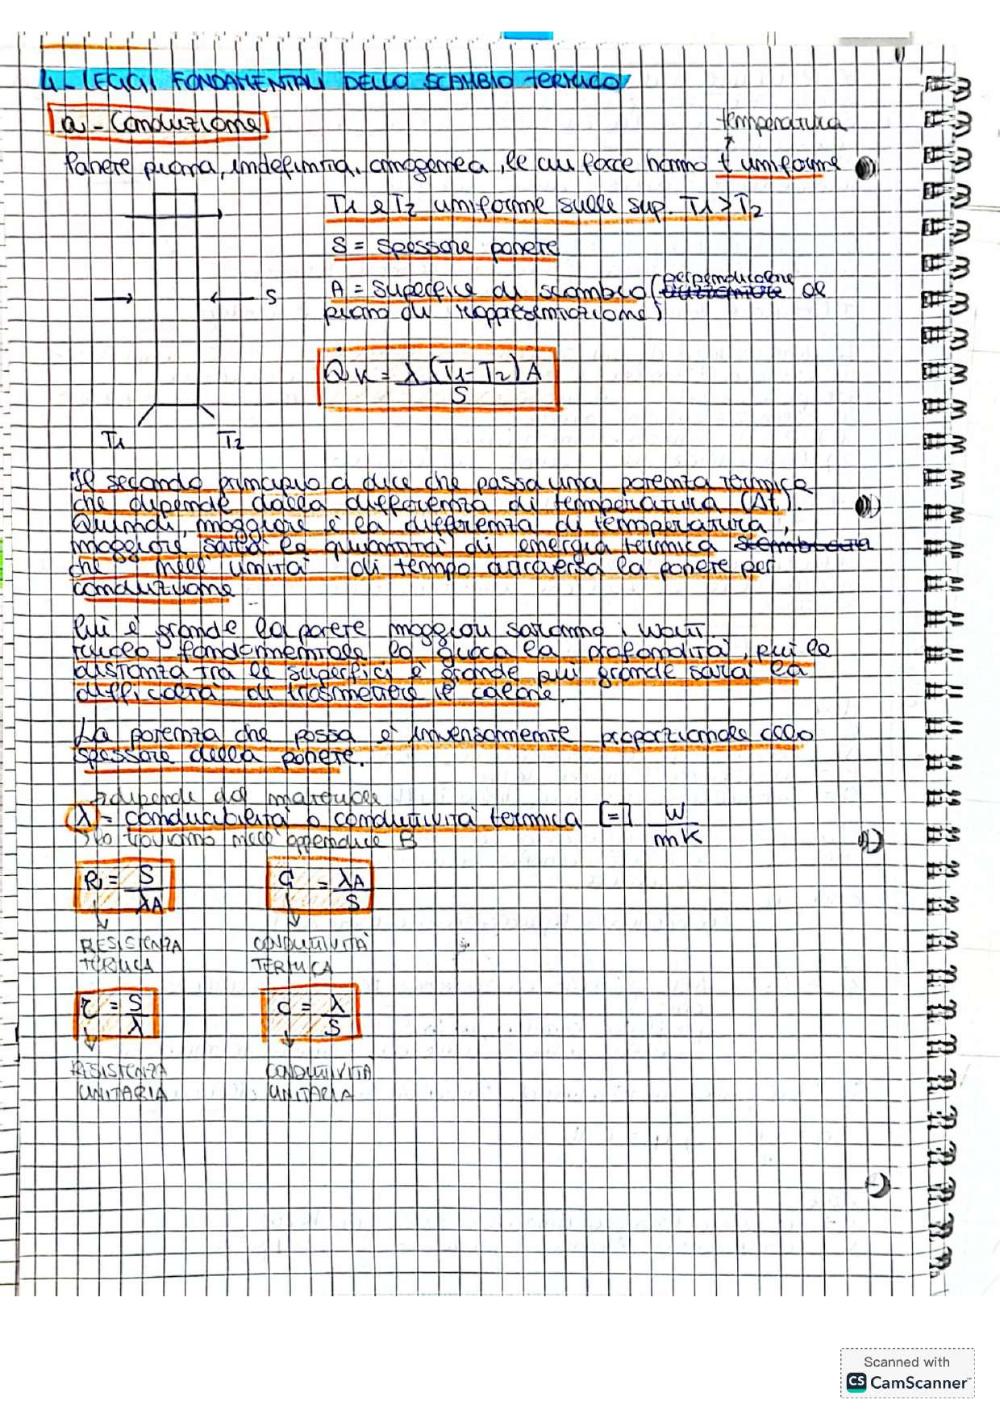 4- LEGGI FONDAMENTALI DELLO SCAMBIO TERMICO
a - Conduzione
temperatura
Parete piana, indefinita, omogenea, le cui facce hanno t uniforme
T1 e T2 uniforme sulle sup. T1 > T2
S = spessore parete
S
A = superfice di scambio (perpendicolare al
piano di rappresentazione)
Q̇k = λ (T1-T2) A
S
T1 T2
Il secondo principio ci dice che passa una potenza termica
che dipende dalla differenza di temperatura (Δt).
Quindi, maggiore è la differenza di temperatura,
maggiore sarà la quantità di energia termica
che nell'unità di tempo attraversa la parete per
conduzione.
Più è grande la parete maggiori saranno i Watt.
ruolo fondamentale lo gioca la profondità, più la
distanza tra le superfici è grande più grande sarà la
difficoltà di trasmettere il calore.
La potenza che passa è inversamente proporzionale allo
spessore della parete.
→ dipende dal materiale
λ = conducibilità o conduttività termica [=] W
mK
lo troviamo nell'appendice B
R = S
λA
G = λA
S
RESISTENZA
TERMICA
CONDUTTIVITÀ
TERMICA
r = S
λ
C = λ
S
RESISTENZA
UNITARIA
CONDUTTIVITÀ
UNITARIA
Scanned with
CS CamScanner